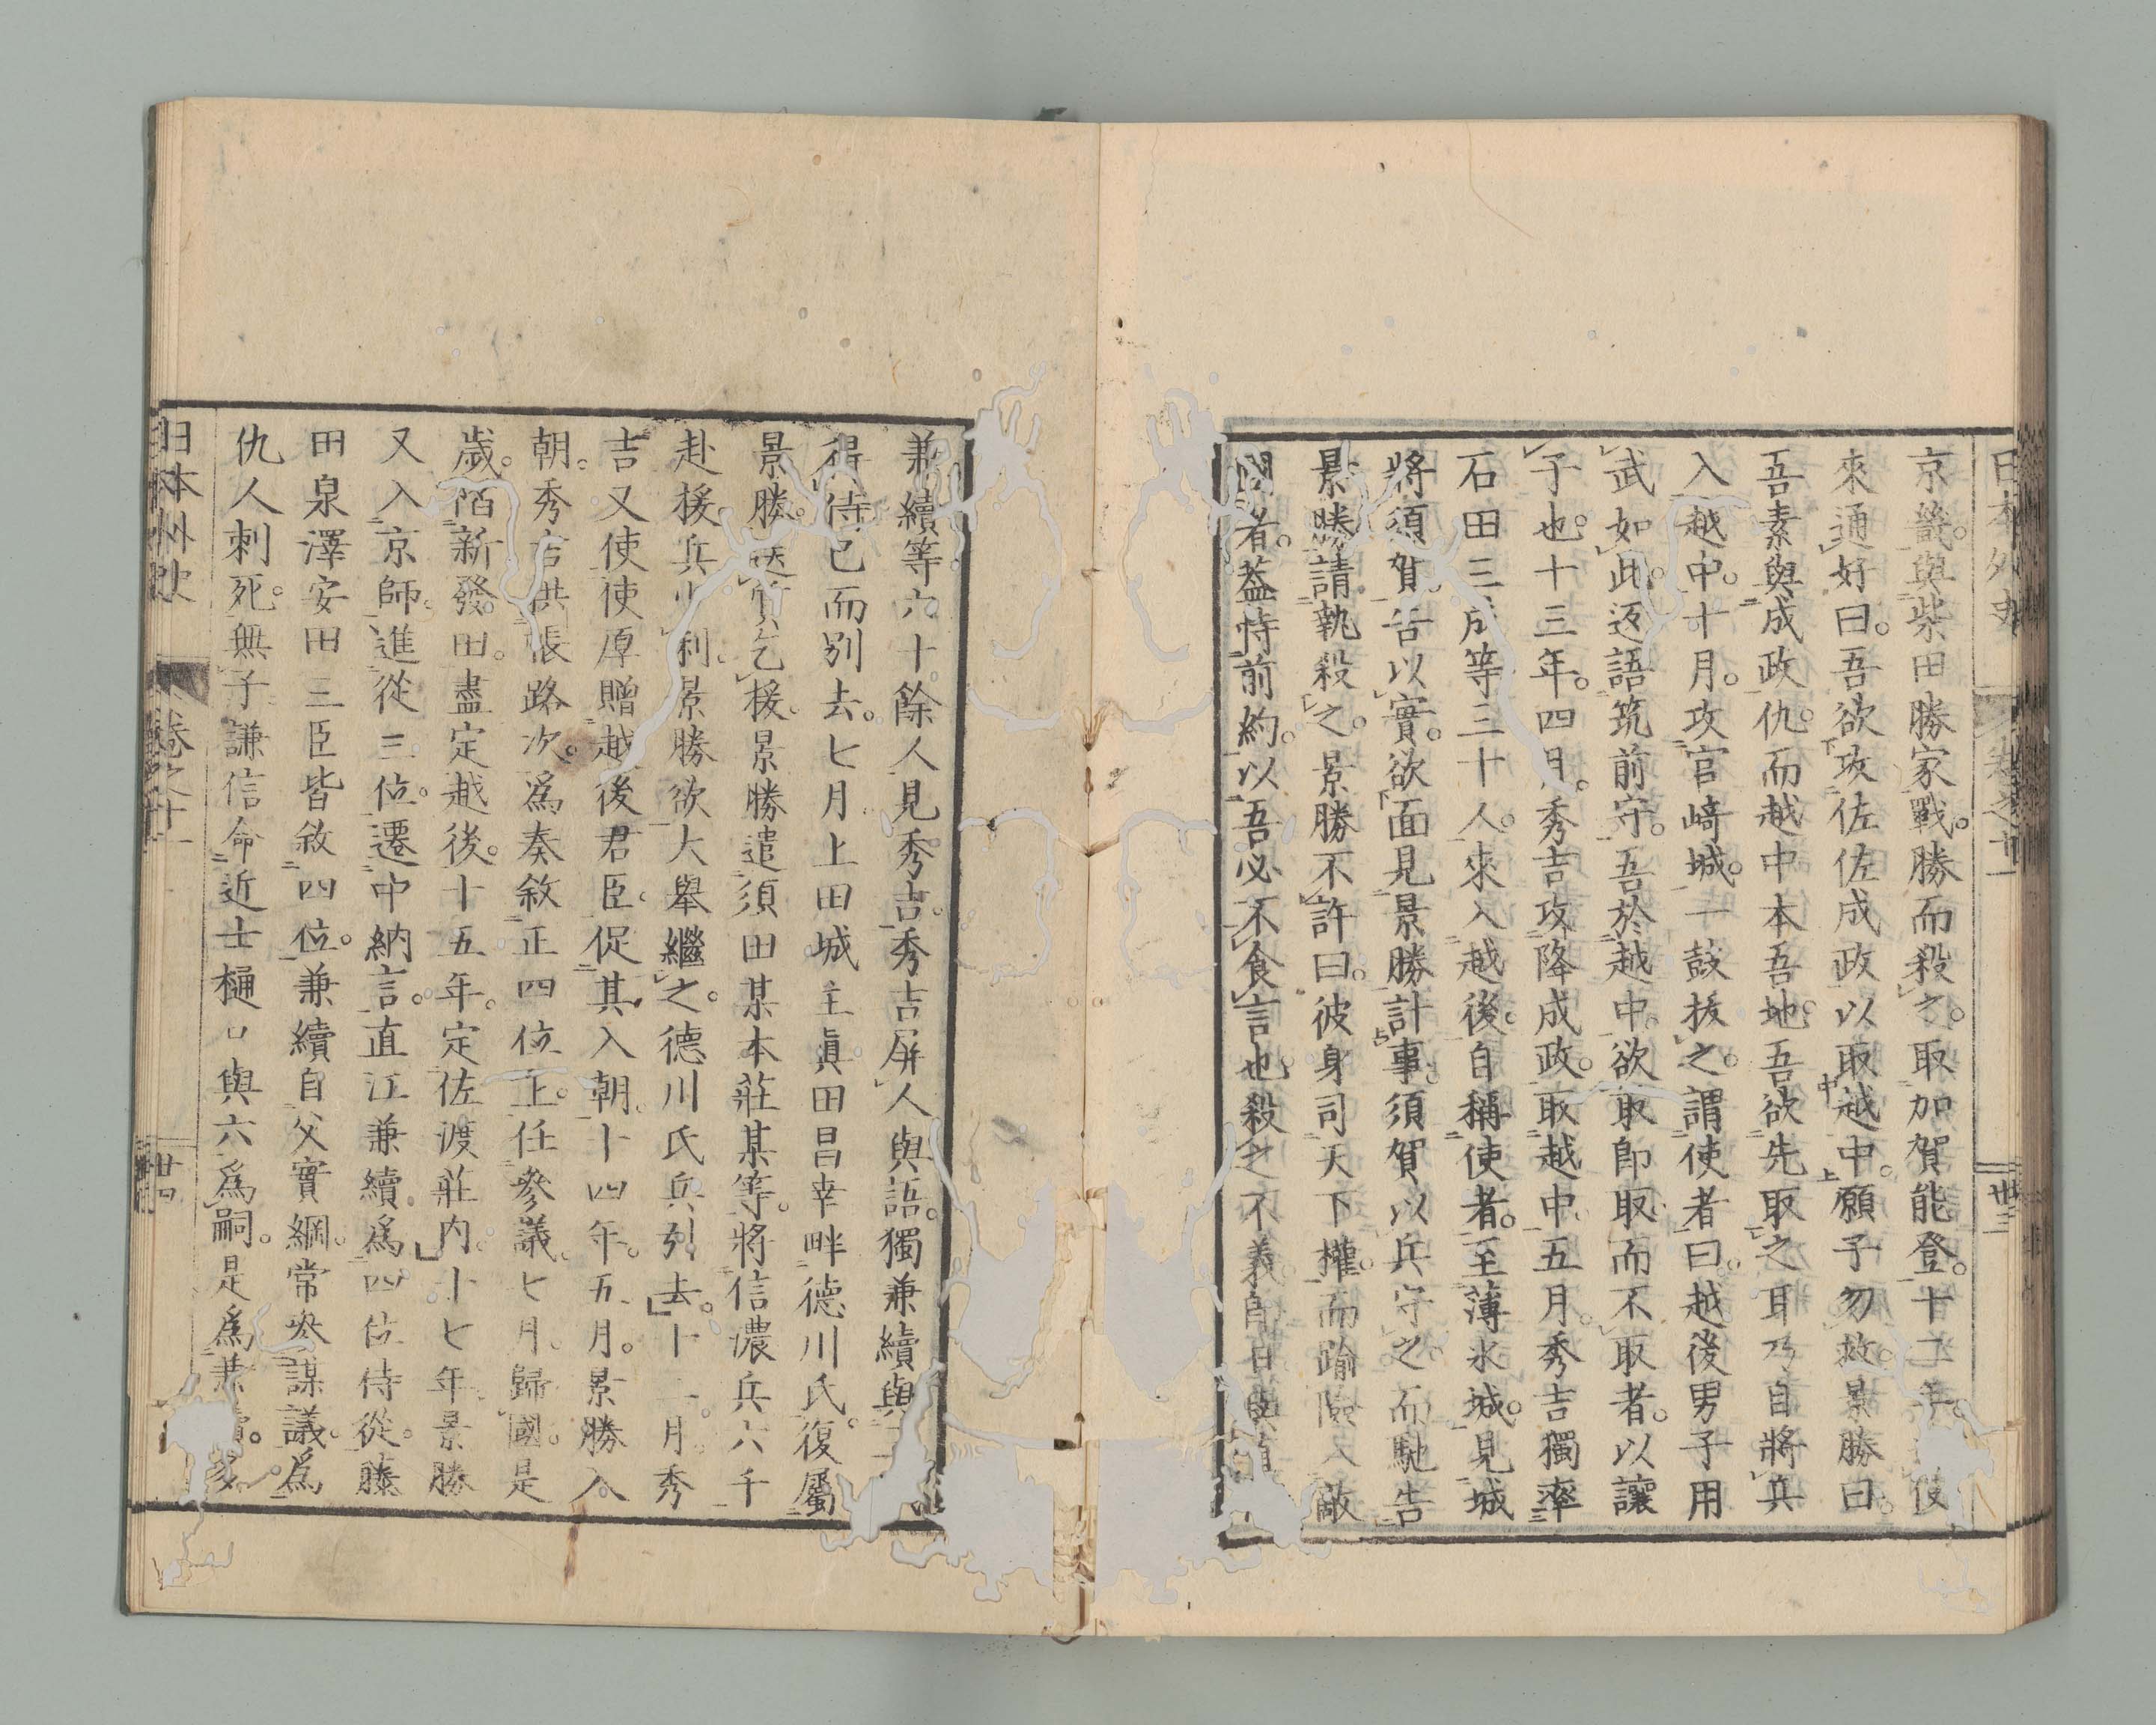 日本外史 卷之十一 卅三
京畿。與柴田勝家戰。勝而殺之。取加賀能登。十二年。使
來通好曰。吾欲攻佐佐成政以取越中。願予勿救。景勝曰。
吾素與成政仇。而越中本吾地。吾欲先取之耳。乃自將兵
入越中。十月。攻宮﨑城。一鼓拔之。謂使者曰。越後男子用
武如此。返語筑前守。吾於越中。欲取卽取。而不取者。以讓
子也。十三年。四月。秀吉攻降成政。取越中。五月。秀吉獨率
石田三成等三十人。來入越後。自稱使者。至薄水城。見城
將須賀。告以實。欲面見景勝計事。須賀以兵守之。而馳告
景勝。請執殺之。景勝不許曰。彼身司天下權。而踰險入敵
國者。蓋恃前約。以吾必不食言也。殺之不義。卽日與直
兼續等六十餘人見秀吉。秀吉屏人與語。獨兼續與三
得侍。已而別去。七月。上田城主眞田昌幸畔德川氏。復屬
景勝。送質乞援。景勝遣須田某本莊某等。將信濃兵六千
赴援。兵少利。景勝欲大舉繼之。德川氏兵引去。十二月。秀
吉又使使厚贈越後君臣。促其入朝。十四年。五月。景勝入
朝。秀吉供張路次。爲奏敘正四位上。任參議。七月。歸國。是
歲。陷新發田。盡定越後。十五年。定佐渡莊内。十七年。景勝
又入京師。進從三位。遷中納言。直江兼續。爲四位侍從。藤
田泉澤安田三臣皆敘四位。兼續自父實綱。常參謀議。爲
仇人刺死。無子。謙信命近士樋口與六爲嗣。是爲兼續。
日本外史 卷之十一 卅四